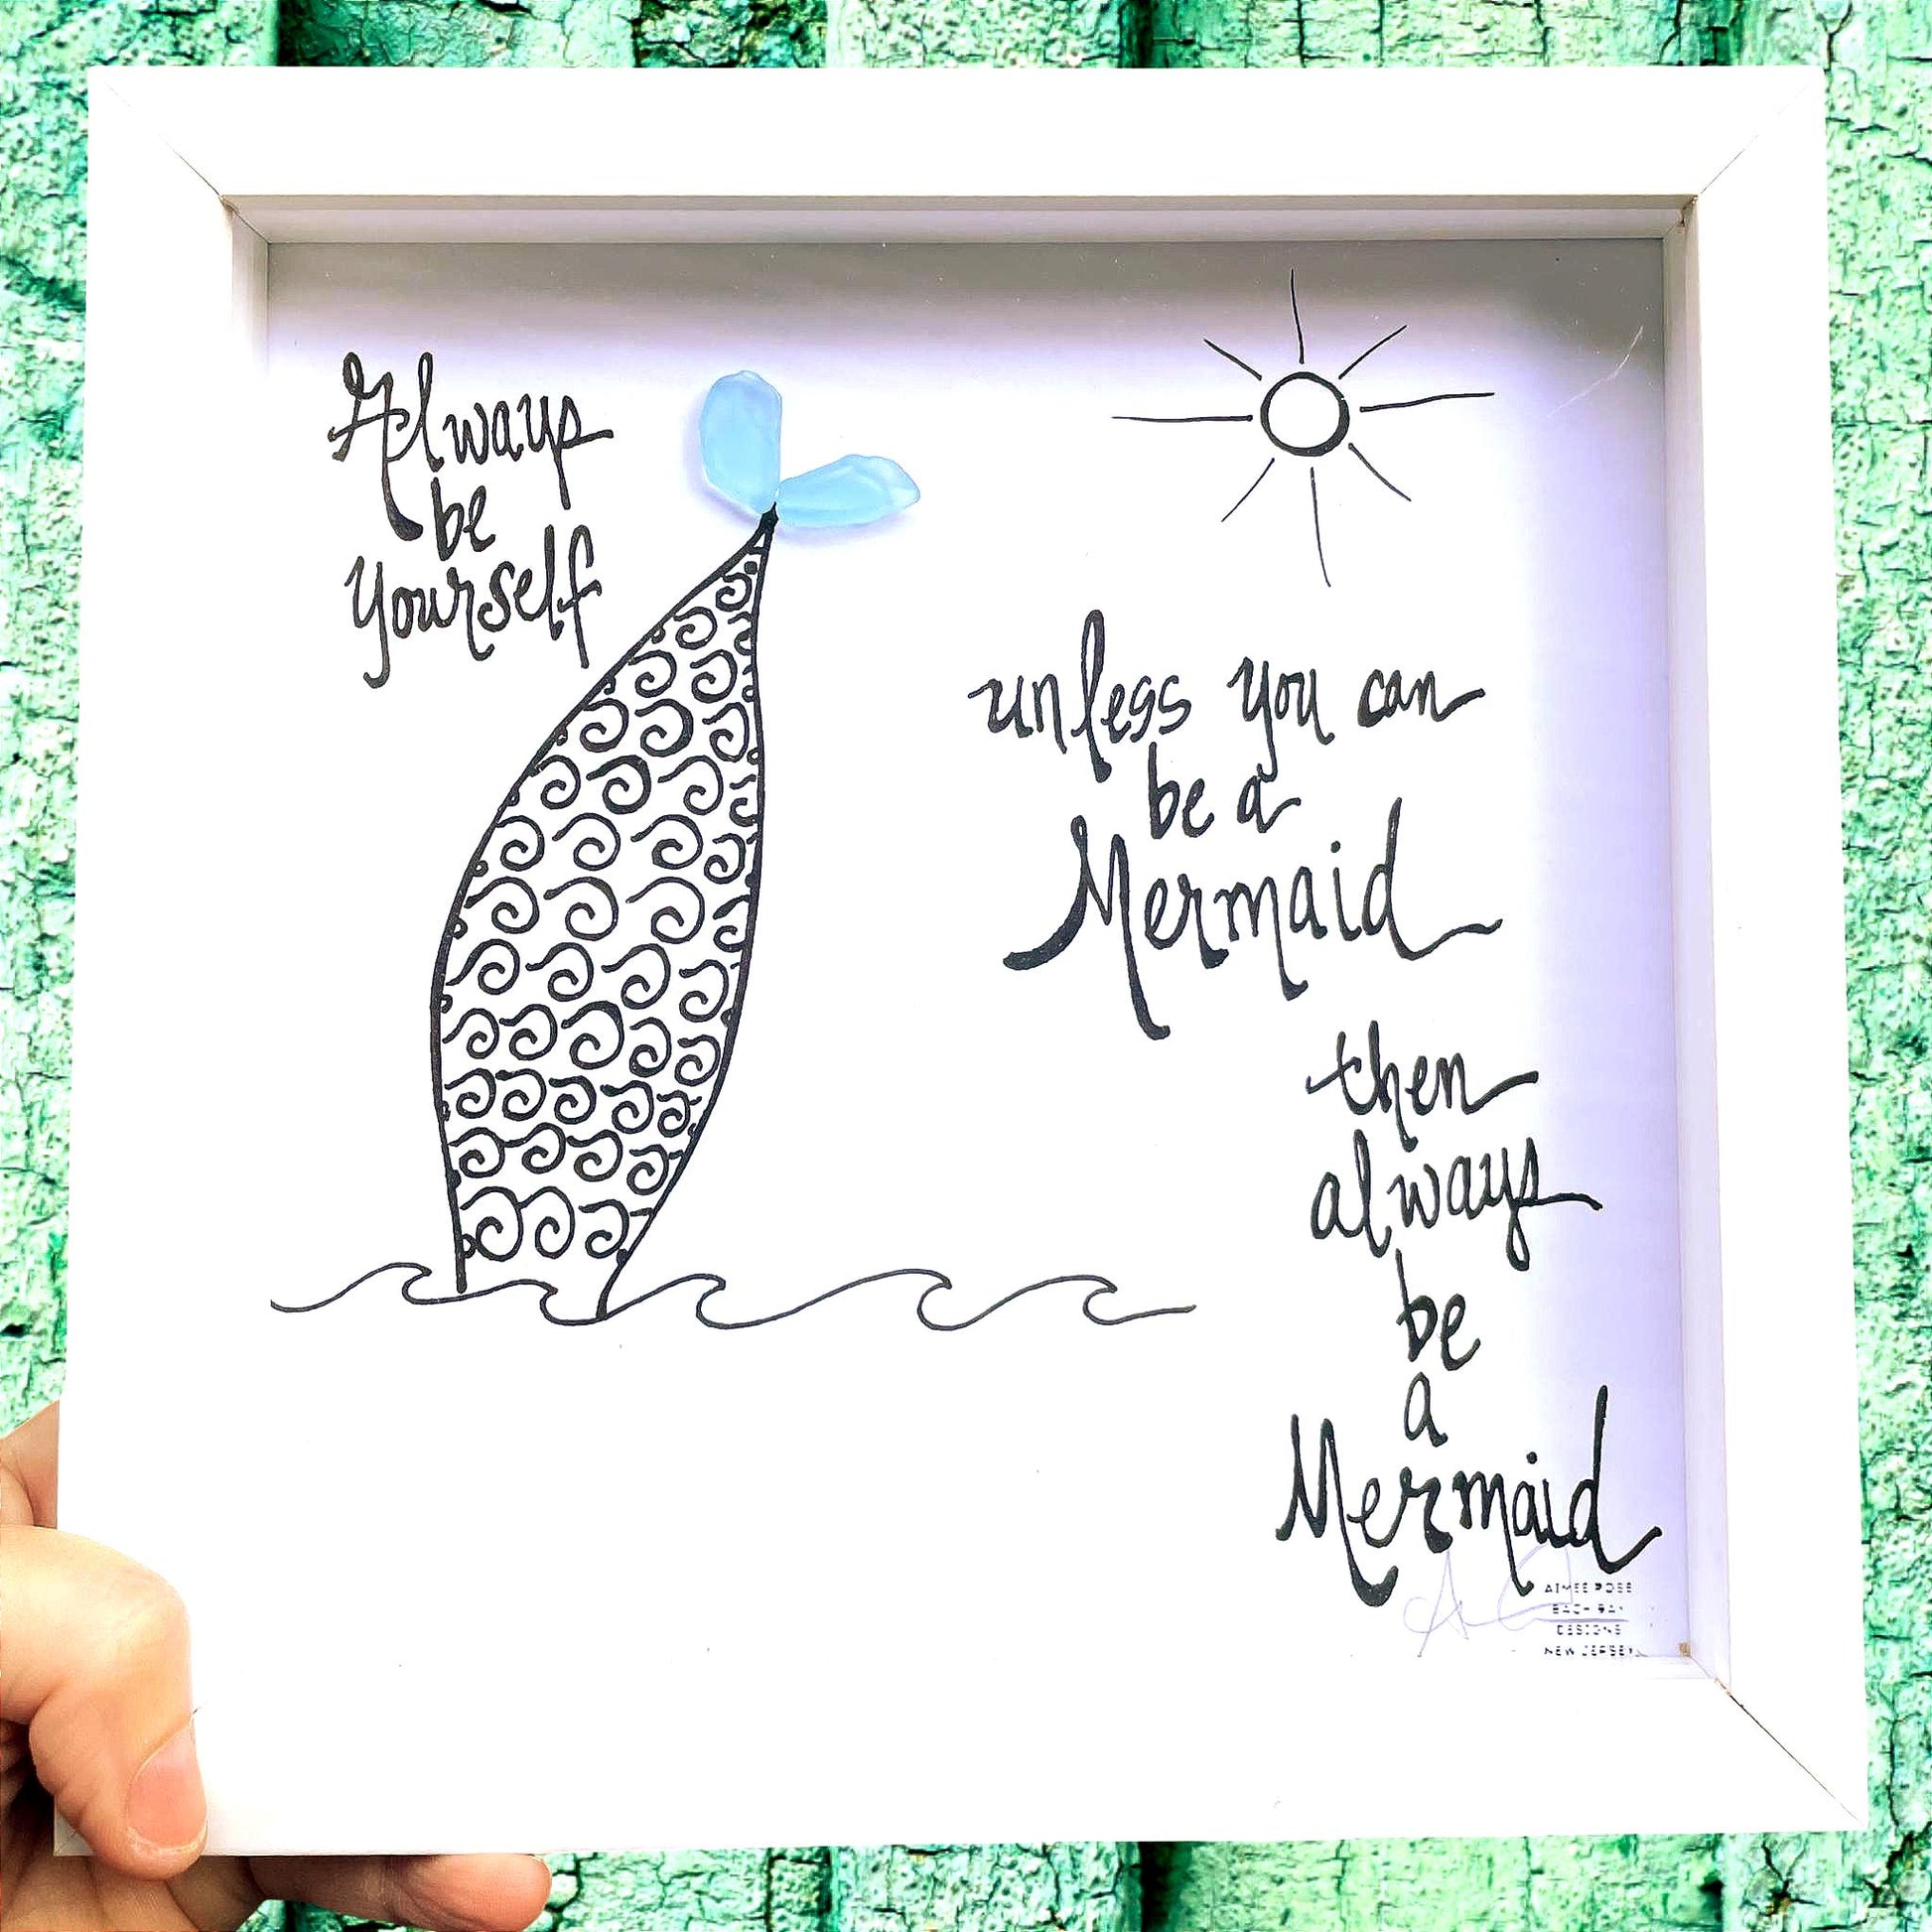 Always
be
Yourself
unless you can
be a
Mermaid
then
always
be
a
Mermaid
AIMEE ROSE
BACH BAY
DESIGNS
NEW JERSEY